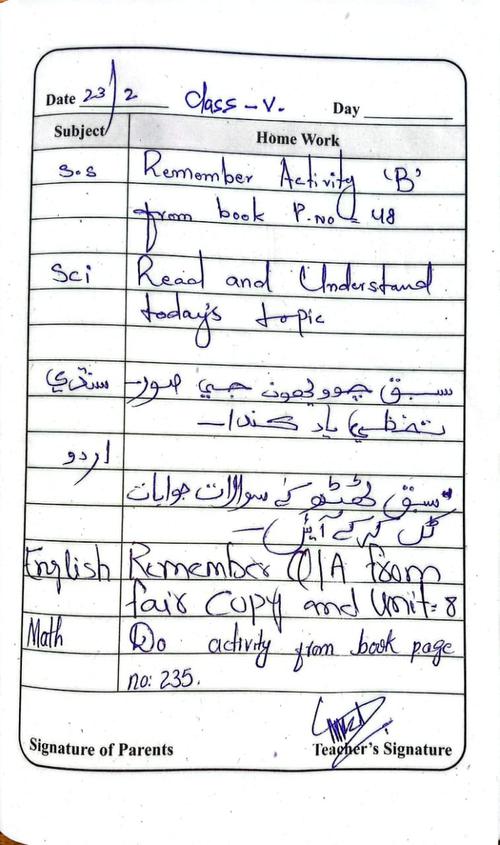 Date 23/2 Class - V. Day
Subject Home Work
S.S Remember Activity 'B'
from book P.No = 48
Sci Read and Understand
today's topic
سنڌي سبق چوويھون جي
ياد ڪندا۔
اردو
سبق ٹھٹھو کے سوالات جوابات
کل کر کے آئیں۔
English Remember Q/A from
fair copy and Unit: 8
Math Do activity from book page
no: 235.
Signature of Parents Teacher's Signature